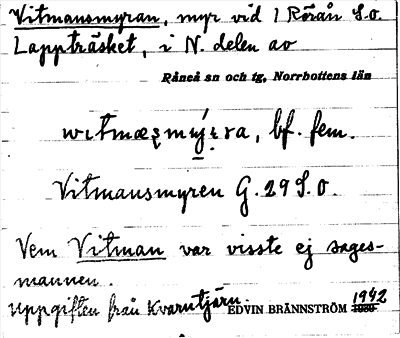 Vitmansmyran, myr vid 1 Rörån S.o.
Lappträsket, i N. delen av
Råneå sn och tg, Norrbottens län
bf. fem.
Vitmansmyren G. 29 S.O.
Vem Vitman var visste ej sages-
mannen.
Uppgiften från Kvarntjärn.
EDVIN BRÄNNSTRÖM 1942